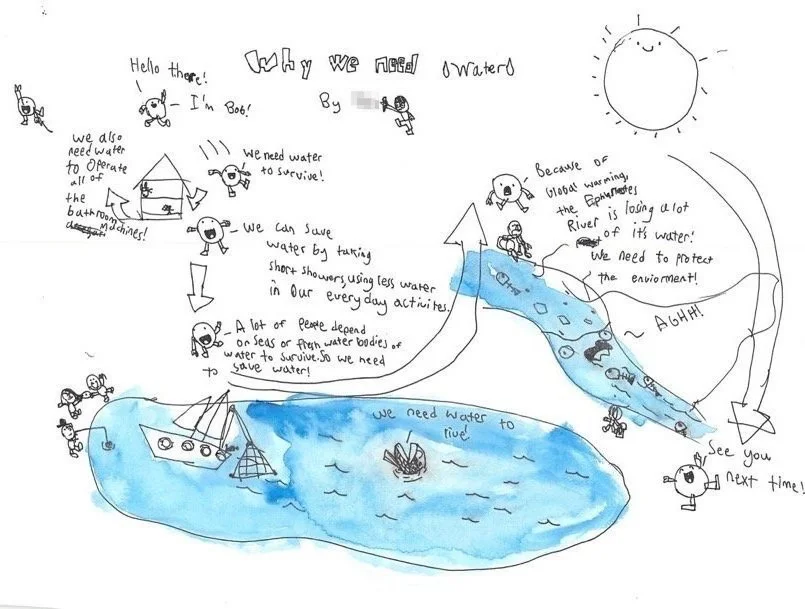 Why we need water
By
Hello there!
I'm Bob!
we also
need water
to operate
all of
the
bathroom
machines!
we need water
to survive!
we can save
water by taking
short showers, using less water
in our everyday activites.
A lot of people depend
on seas or fresh water bodies of
water to survive. So we need
to save water!
Because of
Global warming,
the
River is losing a lot
of it's water!
We need to protect
the enviorment!
AGHH!
we need water to
live!
See you
next time!